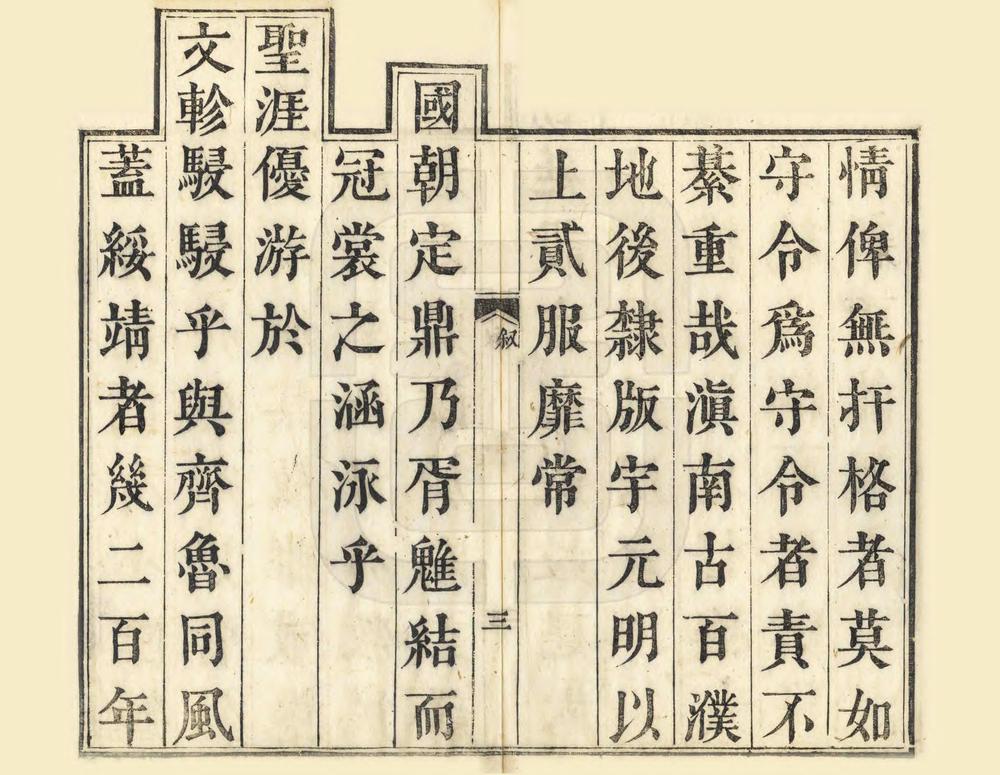 情俾無扞格者莫如
守令爲守令者責不
綦重哉滇南古百濮
地後隸版宇元明以
上貳服靡常
叙
三
國朝定鼎乃胥魋結而
冠裳之涵泳乎
聖涯優游於
文軫駸駸乎與齊魯同風
蓋綏靖者幾二百年